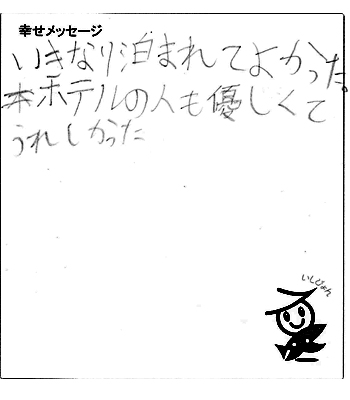 幸せメッセージ
いきなり泊まれてよかった。
ホテルの人も優しくて
うれしかった
いしぴょん